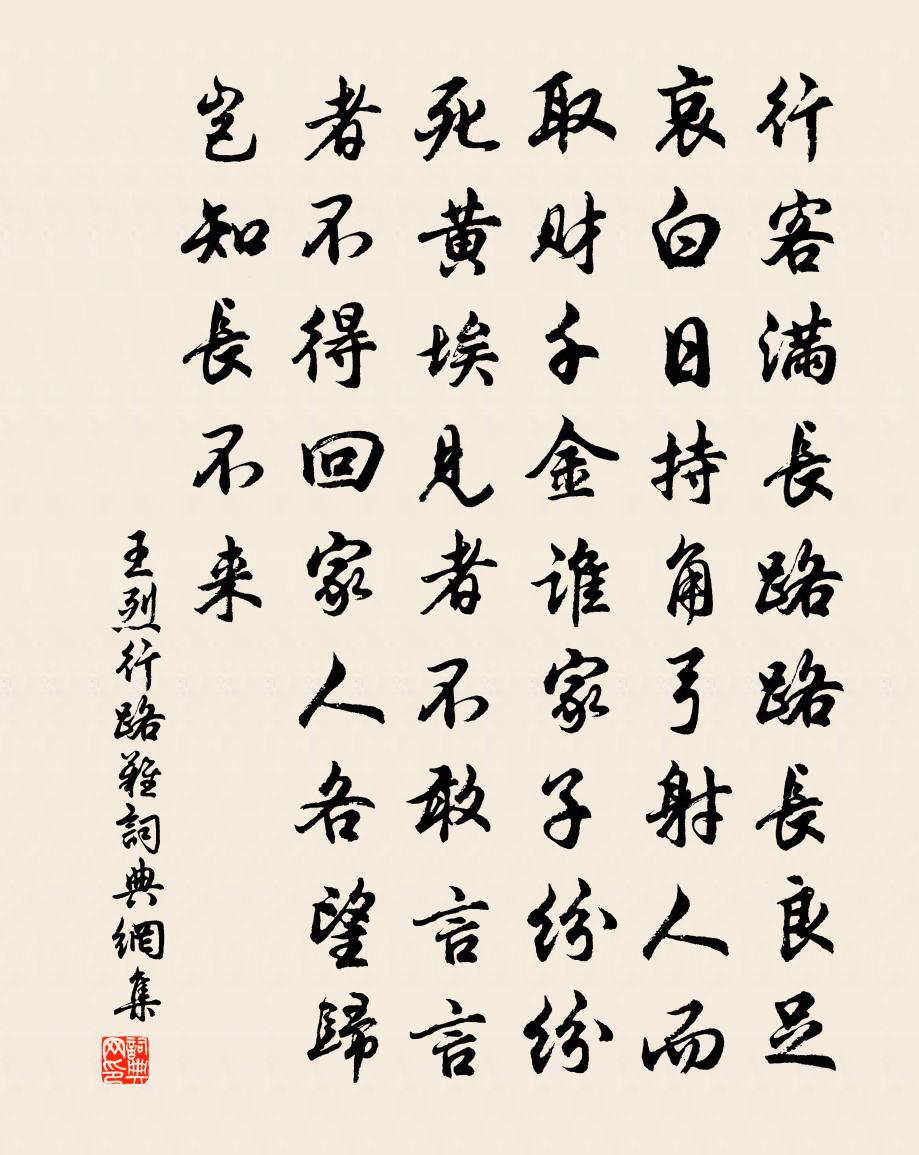 行客满長路路長良足
哀白日持角弓射人而
取财千金谁家子纷纷
死黄埃見者不敢言言
者不得回家人各望歸
岂知長不来
王烈行路難詞典網集
詞典网印